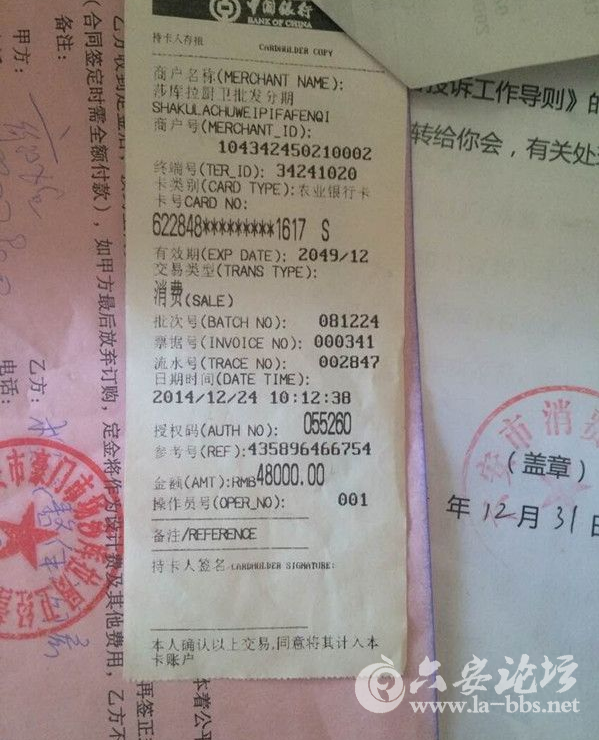 中国银行
BANK OF CHINA
持卡人存根 CARDHOLDER COPY
商户名称(MERCHANT NAME):
莎库拉厨卫批发分期
SHAKULACHUWEIPIFAFENQI
商户号(MERCHANT_ID):
104342450210002
终端号(TER_ID): 34241020
卡类别(CARD TYPE):农业银行卡
卡号CARD NO:
622848*********1617 S
有效期(EXP DATE): 2049/12
交易类型(TRANS TYPE):
消费(SALE)
批次号(BATCH NO): 081224
票据号(INVOICE NO): 000341
流水号(TRACE NO): 002847
日期时间(DATE TIME):
2014/12/24 10:12:38
授权码(AUTH NO): 055260
参考号(REF):435896466754
金额(AMT):RMB48000.00
操作员号(OPER_NO): 001
备注/REFERENCE
持卡人签名 CARDHOLDER SIGNATURE:
本人确认以上交易,同意将其计入本
卡账户
(合同签定时需全额付款),如甲方最后放弃订购,定金将作为设计费及其他费用,乙方不
备注:
甲方:
乙方:
电话:
投诉工作导则》的
转给你会,有关处
市消费
(盖章)
年12月31日
六安论坛
www.la-bbs.net